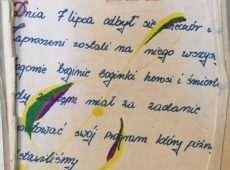 Dnia 7 lipca odbył się wieczór
zaproszeni zostali na niego wszys
bogowie boginie boginki herosi i śmiert
miał za zadanie
swój program który późn
stawiliśmy